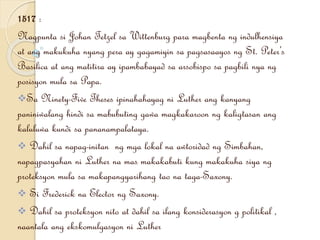 1517 :
Nagpunta si Johan Tetzel sa Wittenburg para magbenta ng indulhensiya
at ang makukuha nyang pera ay gagamiyin sa pagsasaayos ng St. Peter's
Basilica at ang matitira ay ipambabayad sa arsobispo sa pagbili nya ng
posisyon mula sa Papa.
❖Sa Ninety-Five Theses ipinahahayag ni Luther ang kanyang
paniniwalang hindi sa mabubuting gawa magkakaroon ng kaligtasan ang
kaluluwa kundi sa pananampalataya.
❖ Dahil sa napag-initan ng mga lokal na awtoridad ng Simbahan,
napagpasyahan ni Luther na mas makakabuti kung makakuha siya ng
proteksyon mula sa makapangyarihang tao na taga-Saxony.
❖ Si Frederick na Elector ng Saxony.
❖ Dahil sa proteksyon nito at dahil sa ilang konsiderasyon g politikal ,
naantala ang ekskomulgasyon ni Luther